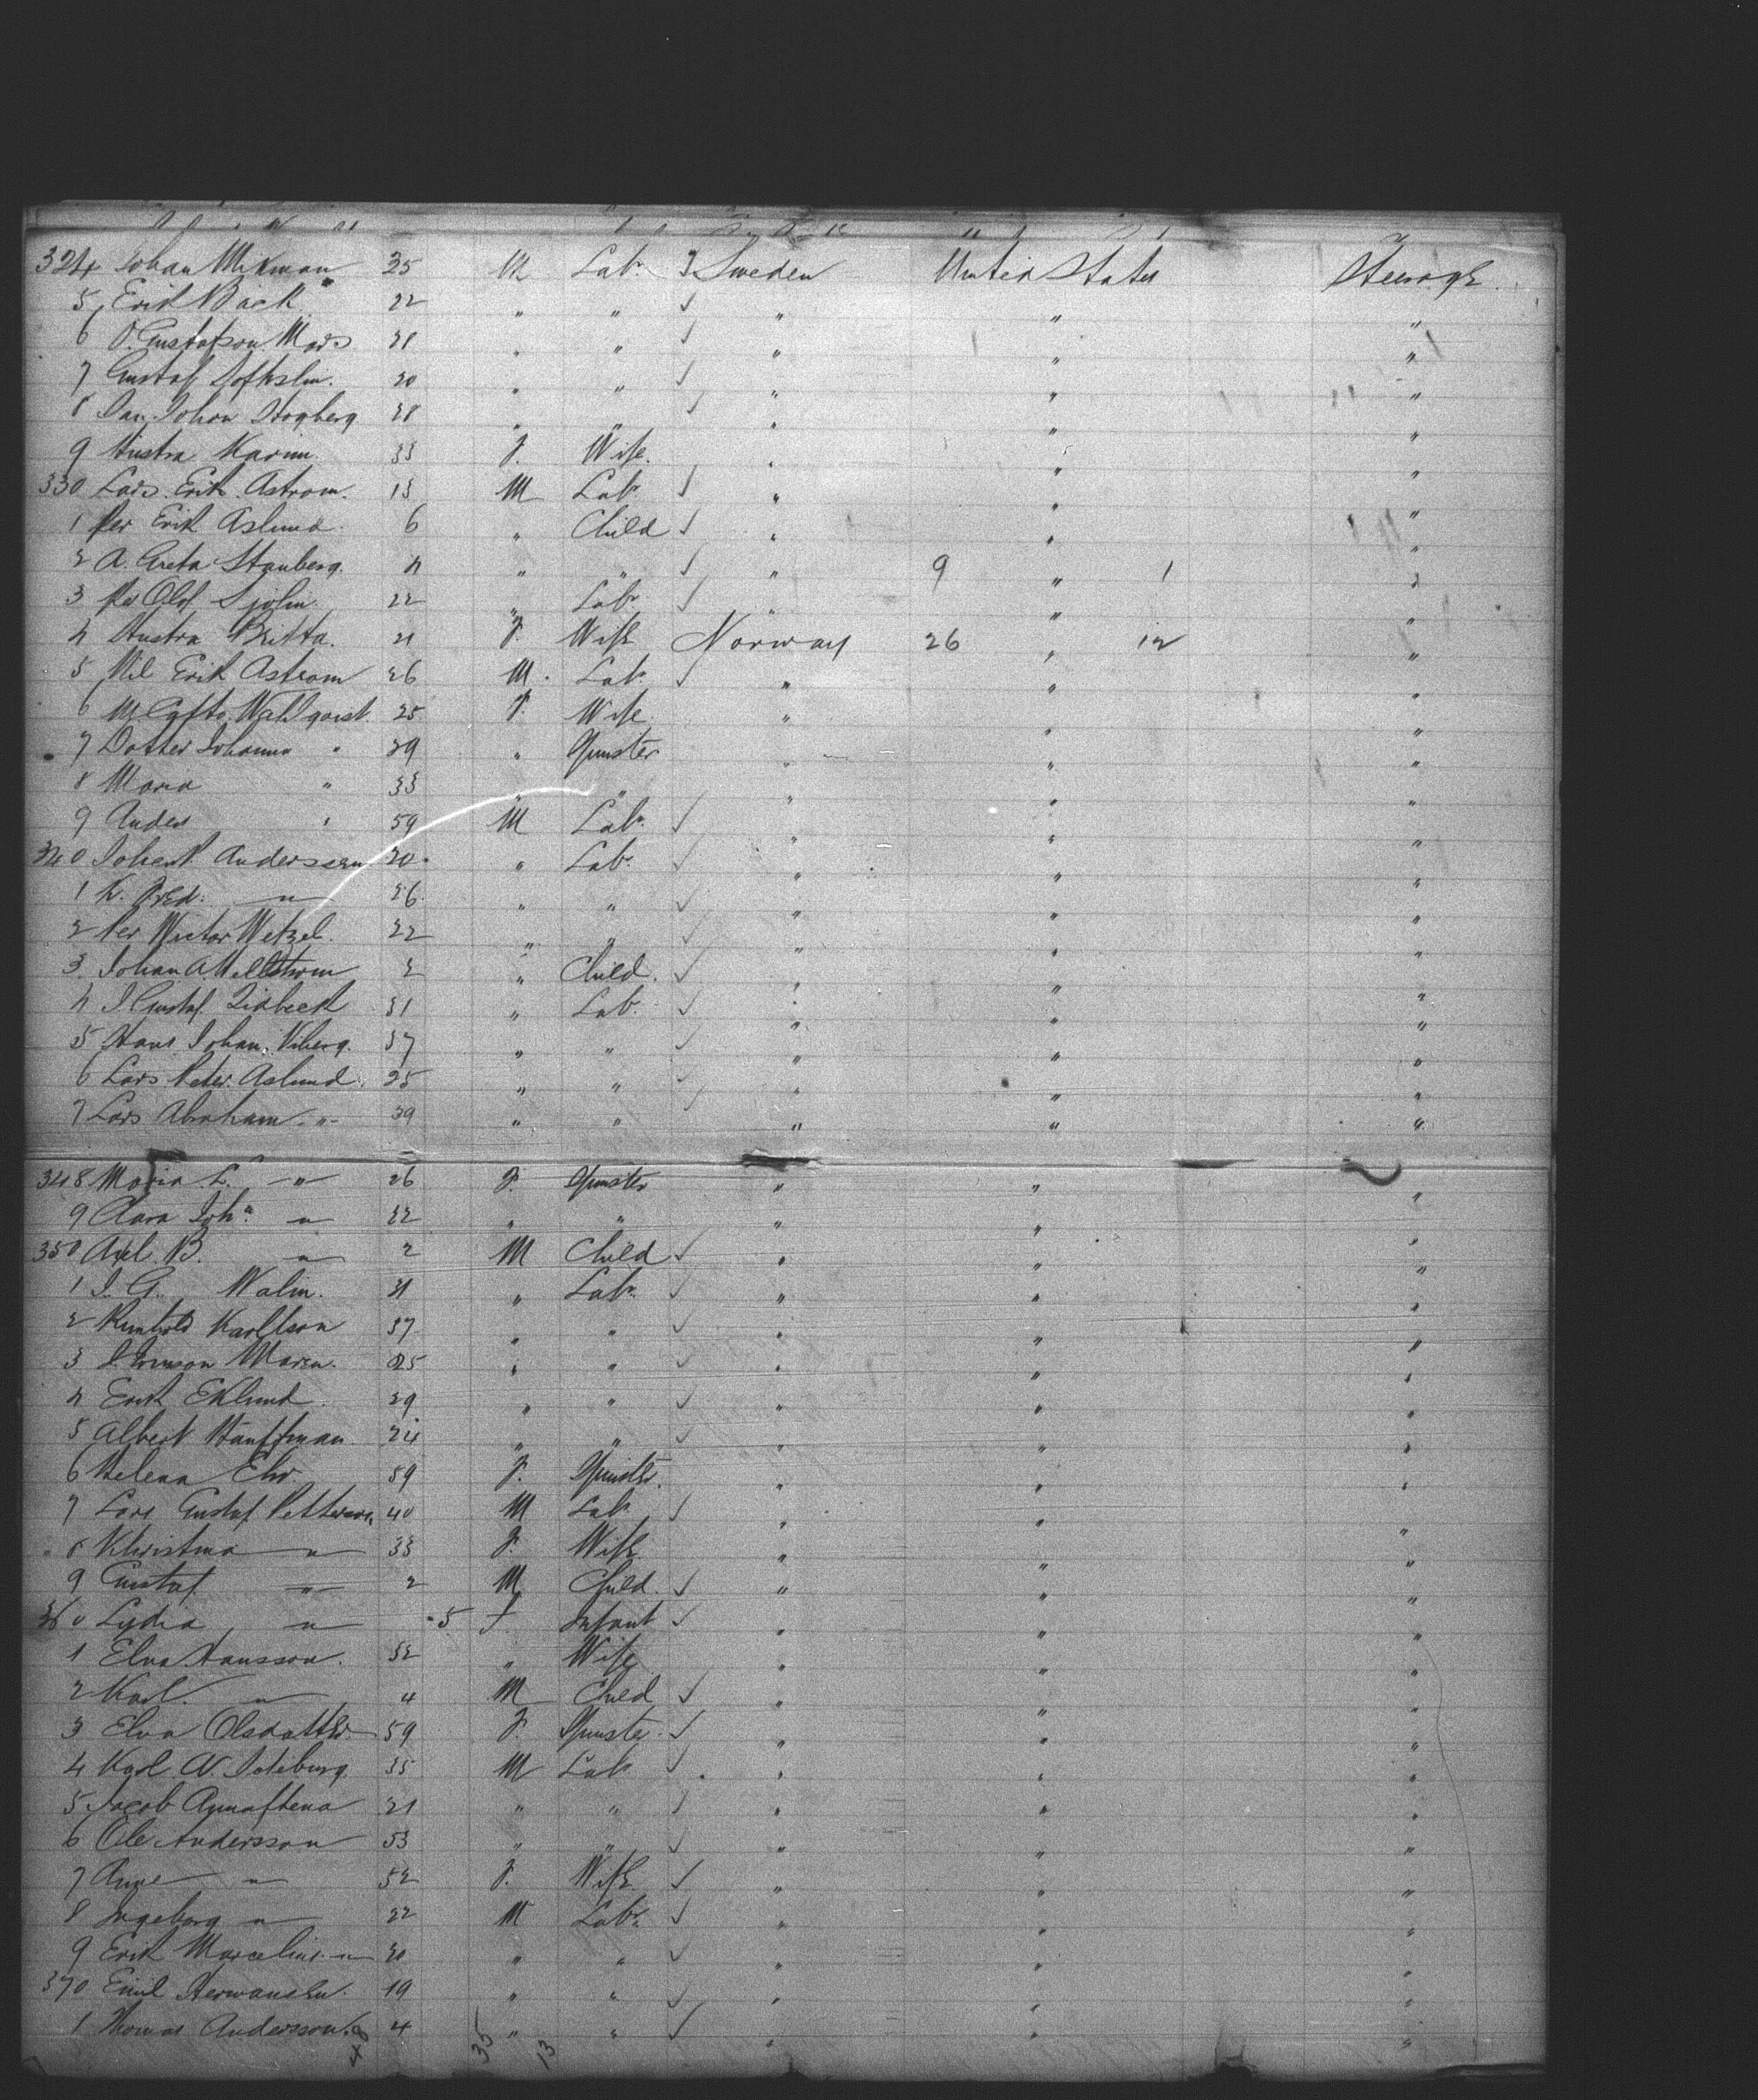 324 Johan Wikman 25 M Lab. Sweden United States Steerage
5 Erik Back 22 " " " " "
6 O. Gustafson Mars " " " " "
7 Gustaf 20 " " " " "
8 Jan Johan Hogberg 38 " " " " "
9 Hustra Karin 33 F. Wife. " " "
330 Lars Erik Astrom. 13 M Lab " " "
1 Per Erik Aslund 6 " Child " " "
2 A. Greta Stanberg. 4 " " " 9 " 1 "
3 Per Olof Sjolin 22 " Lab. " " "
4 Hustra Britta. 21 F. Wife Norway 26 " 12 "
5 Nil Erik Astrom 26 M. Lab. " " "
6 Wahlqvist 25 F. Wife " " "
7 Dotter Johanna " 29 " Spinster " " "
8 Maria " 33 " " " " "
9 Anders " 59 M Lab. " " "
340 Johan Anderssen 20 " Lab. " " "
1 K. Fred. " 26 " " " " "
2 Per Wictor Wetzel. 22 " " " " "
3 Johan A. Wellstrom 2 " Child. " " "
4 J. Gustaf Lidbeck 31 " Lab. " " "
5 Hans Johan. Viberg. 37 " " " " "
6 Lars Peter. Aslund. 25 " " " " "
7 Lars Abraham " 39 " " " " "
348 Maria L. " 26 F. Spinster " " "
9 Clara Joh.a " 22 " " " " "
350 Axel. B. " 2 M Child " " "
1 J. G. Walin. 31 " Lab. " " "
2 Karlson 37 " " " " "
3 Maren. 25 " " " " "
4 Erik Eklund. 29 " " " " "
5 Albert Hauffman 24 " " " " "
6 Helena 59 F. Spinster. " " "
7 Lars Gustaf Petterson 40 M Lab. " " "
8 Khristina " 33 F. Wife " " "
9 Gustaf " 2 M Child. " " "
360 Lydia " 5 F. Infant " " "
1 Elna Hansson. 32 " Wife " " "
2 Karl. " 4 M Child " " "
3 Elna Olsdatter 59 F. Spinster " " "
4 Karl. A. 35 M Lab " " "
5 Jacob 21 " " " " "
6 Ole Andersson 53 " " " " "
7 Anne " 52 F. Wife " " "
8 Ingeborg " 22 M Lab. " " "
9 Erik Marcelius " 20 " " " " "
370 Emil Hermansen. 19 " " " " "
1 Thomas Andersson. 4 " " " " "
48 35 13